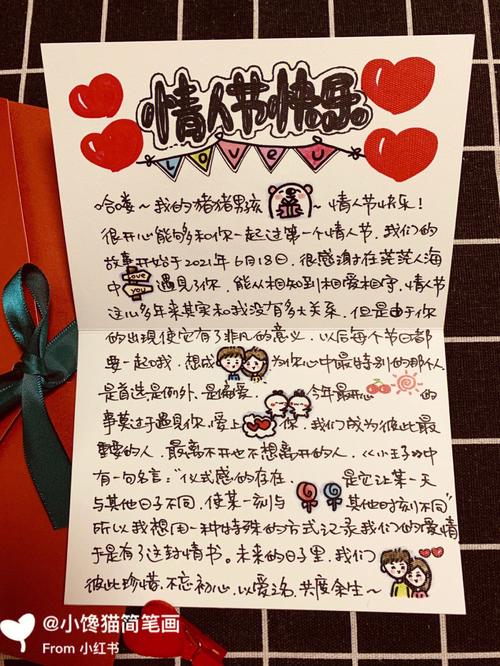 情人节快乐
LOVE U
哈喽～我的猪猪男孩～情人节快乐！
很开心能够和你一起过第一个情人节，我们的
故事开始于2021年6月18日，很感谢在茫茫人海
中 Love you 遇见了你，能从相知到相爱相守，情人节
这么多年来其实和我没有多大关系，但是由于你
的出现使它有了非凡的意义，以后每个节日都
要一起哦，想成为你心中最特别的那个人
是首选是例外，是偏爱，今年最开心的
事莫过于遇见你，爱上你，我们成为彼此最
重要的人，最离不开也不想离开的人，《小王子》中
有一句名言："仪式感的存在，是它让某一天
与其他日子不同，使某一刻与其他时刻不同"
所以我想用一种特殊的方式记录我们的爱情
于是有了这封情书。未来的日子里，我们
彼此珍惜，不忘初心，以爱之名，共度余生～
@小馋猫简笔画
From 小红书